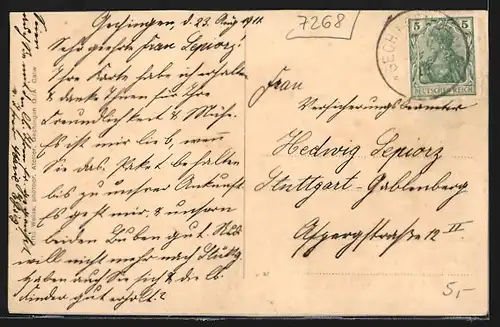 Gechingen d. 23. Aug 1911
Sehr geehrte Frau Lepiorz!
Ihre Karte habe ich erhalten
& danke Ihnen für Ihre
Freundlichkeit & Mühe.
Es ist mir lieb, wenn
Sie das Paket behalten
bis zu unsrer Ankunft
Es geht mir & unsern
beiden Buben gut.
will nicht mehr nach Stuttg.
haben auch Sie sich & die lb.
Kinder gut erholt?
7268
GECH
5 5
DEUTSCHES REICH
Frau
Versicherungsbeamter
Hedwig Lepiorz
Stuttgart-Gablenberg
Aspergstraße 12 II
5,-